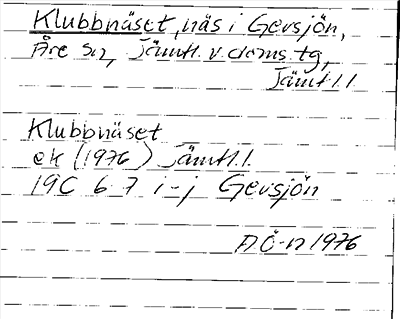 Klubbnäset, näs i Gevsjön,
Åre sn, Jämtl. v. doms. tg,
Jämtl. l.
Klubbnäset
ek (1976) Jämtl. l.
19C 6 7 i-j Gevsjön
A.Ö-n 1976